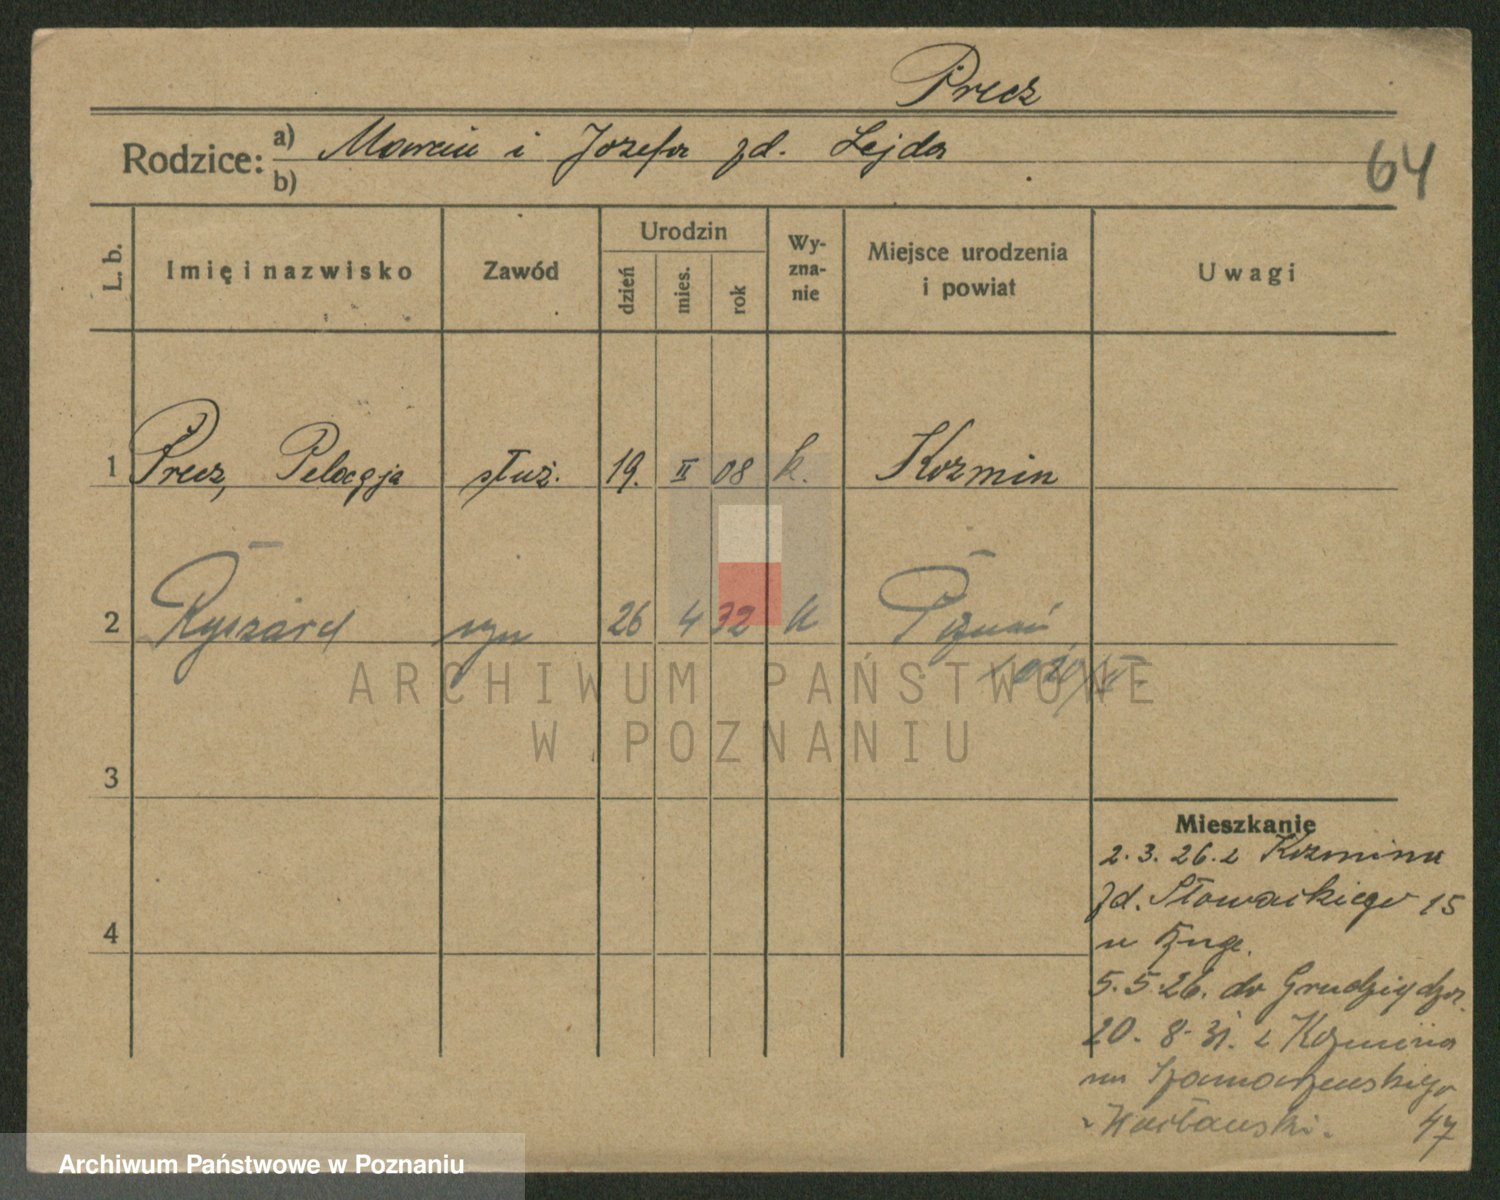 Precz
Rodzice: a) Marcin i Jozefa zd. Lejda
b)
64
L. b. Imię i nazwisko Zawód Urodzin dzień mies. rok Wyznanie Miejsce urodzenia i powiat Uwagi
1 Precz, Pelagja służ. 19. II 08 k. Kozmin
2 Ryszard syn 26 4 32 k Poznań
3
4
Mieszkanie
2. 3. 26. z Kozmina
zd. Słowackiego 15
u
5. 5. 26. do Grudziądza.
20. 8. 31. z Kozmina
na Szamarzewskiego
47
ARCHIWUM PAŃSTWOWE
W POZNANIU
Archiwum Państwowe w Poznaniu